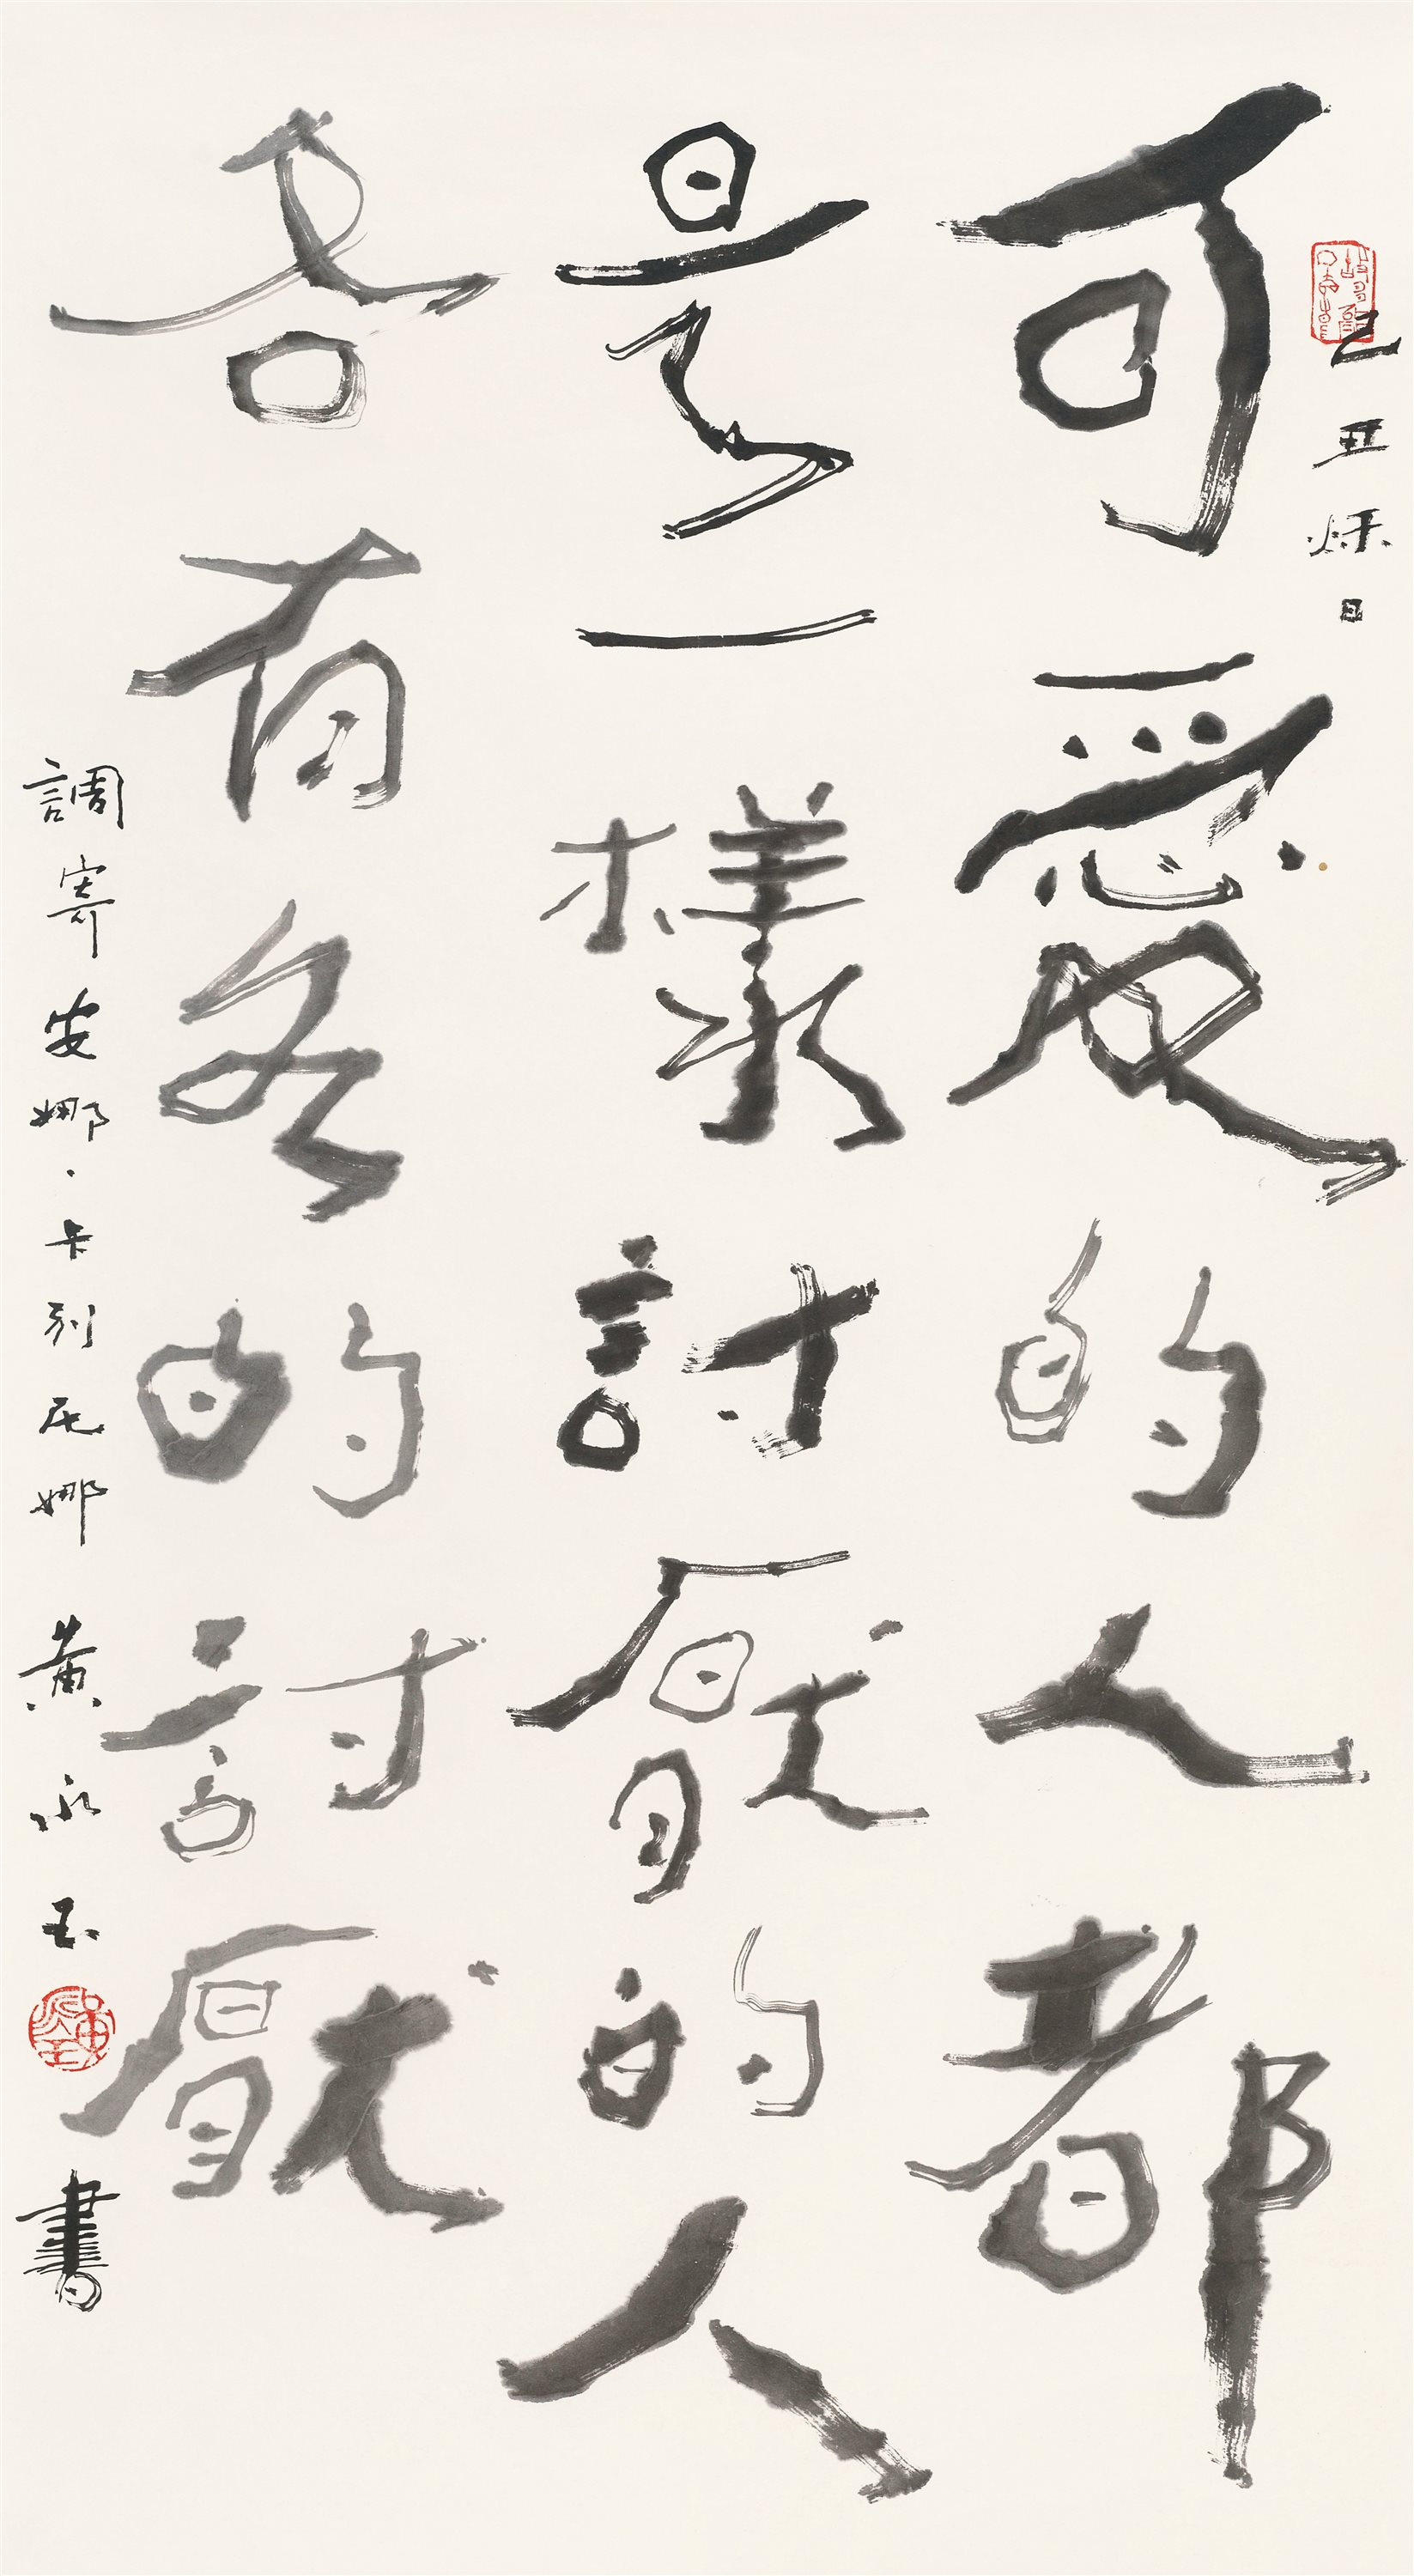 己丑秌日
可愛的人都
是一樣討厭的人
各有各的討厭
調寄安娜·卡列尼娜 黃永玉
黃永玉
書